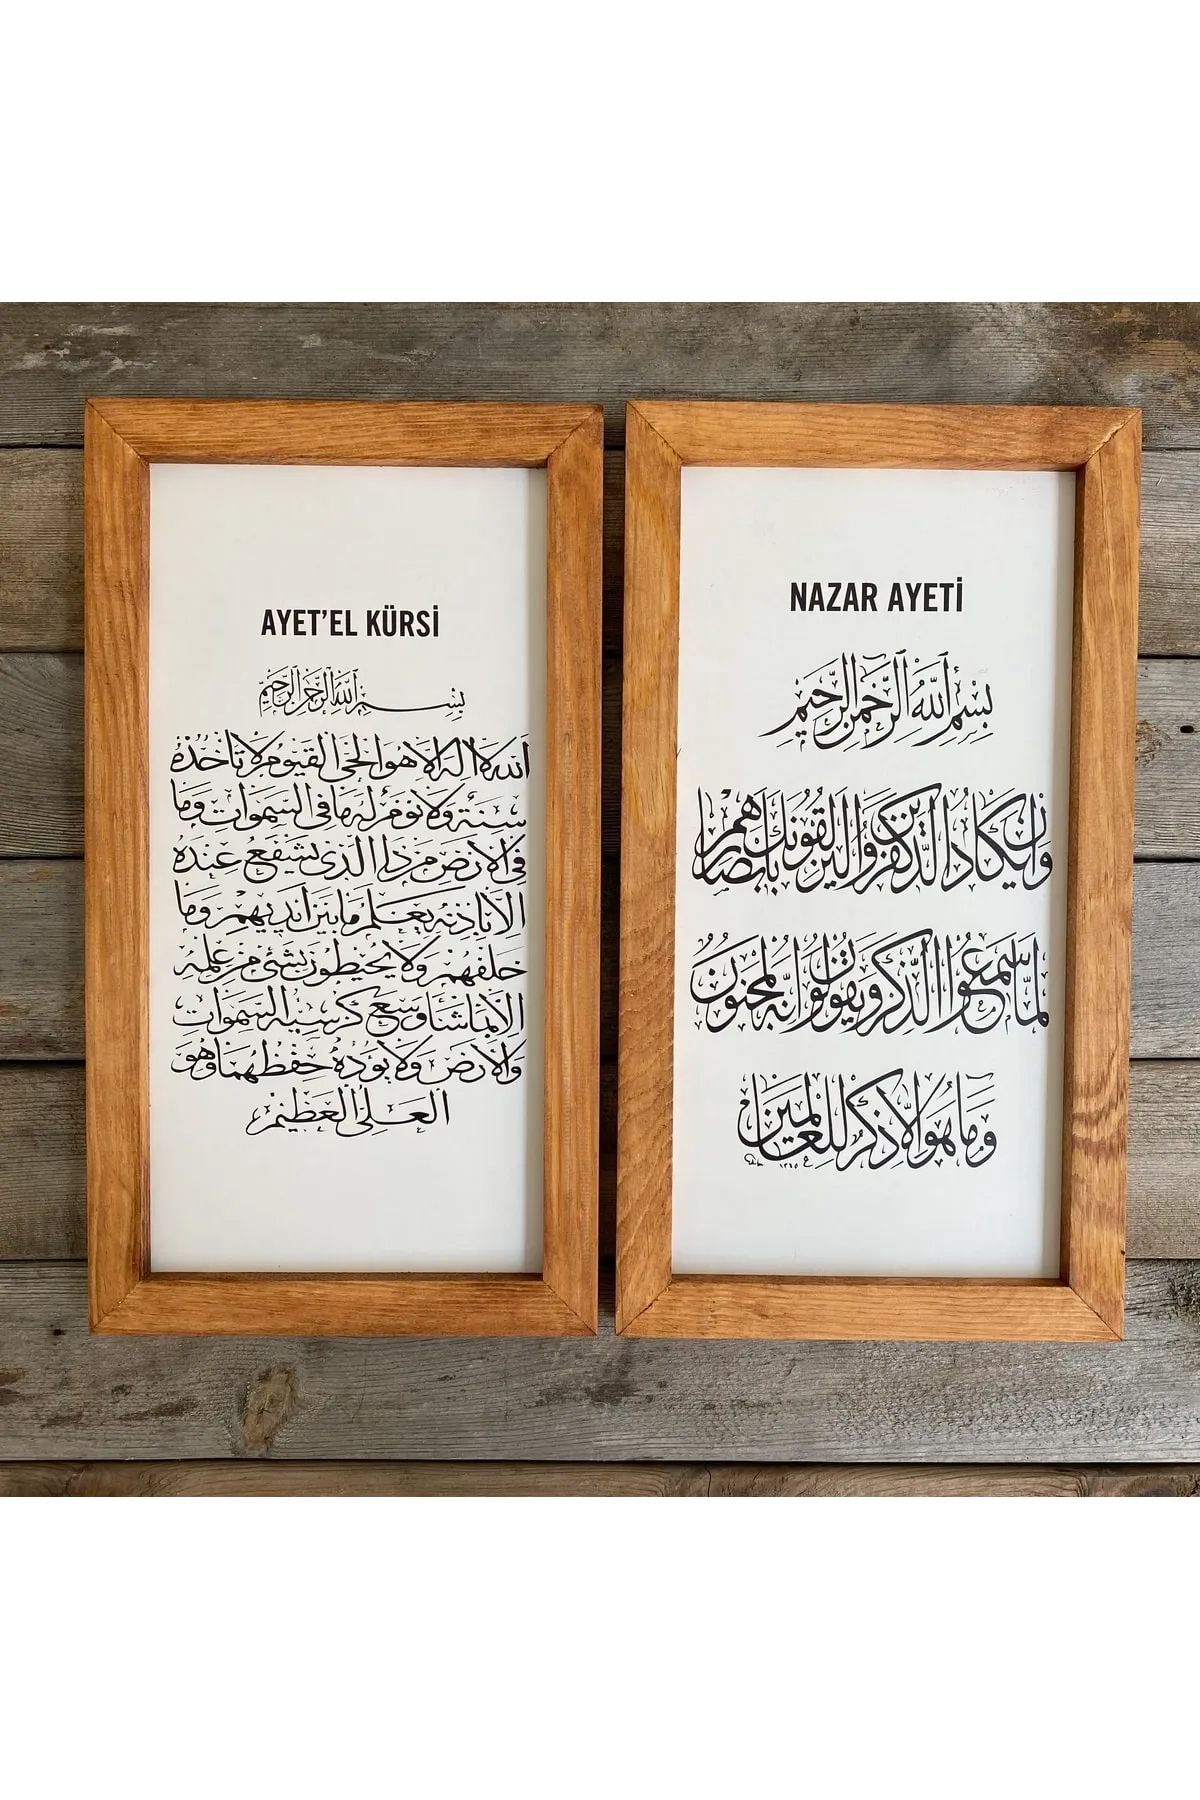 AYET'EL KÜRSİ
بِسْمِ اللهِ الرَّحْمٰنِ الرَّحِيمِ
اَللهُ لَا اِلٰهَ اِلَّا هُوَ الْحَيُّ الْقَيُّومُ لَا تَأْخُذُهُ
سِنَةٌ وَلَا نَوْمٌ لَهُ مَا فِي السَّمٰوَاتِ وَمَا
فِي الْاَرْضِ مَنْ ذَا الَّذِي يَشْفَعُ عِنْدَهُ
اِلَّا بِاِذْنِهِ يَعْلَمُ مَا بَيْنَ اَيْدِيهِمْ وَمَا
خَلْفَهُمْ وَلَا يُحِيطُونَ بِشَيْءٍ مِنْ عِلْمِهِ
اِلَّا بِمَا شَاءَ وَسِعَ كُرْسِيُّهُ السَّمٰوَاتِ
وَالْاَرْضَ وَلَا يَؤُدُهُ حِفْظُهُمَا وَهُوَ
الْعَلِيُّ الْعَظِيمُ
NAZAR AYETİ
بِسْمِ اللهِ الرَّحْمٰنِ الرَّحِيمِ
وَاِنْ يَكَادُ الَّذِينَ كَفَرُوا لَيُزْلِقُونَكَ بِاَبْصَارِهِمْ
لَمَّا سَمِعُوا الذِّكْرَ وَيَقُولُونَ اِنَّهُ لَمَجْنُونٌ
وَمَا هُوَ اِلَّا ذِكْرٌ لِلْعَالَمِينَ